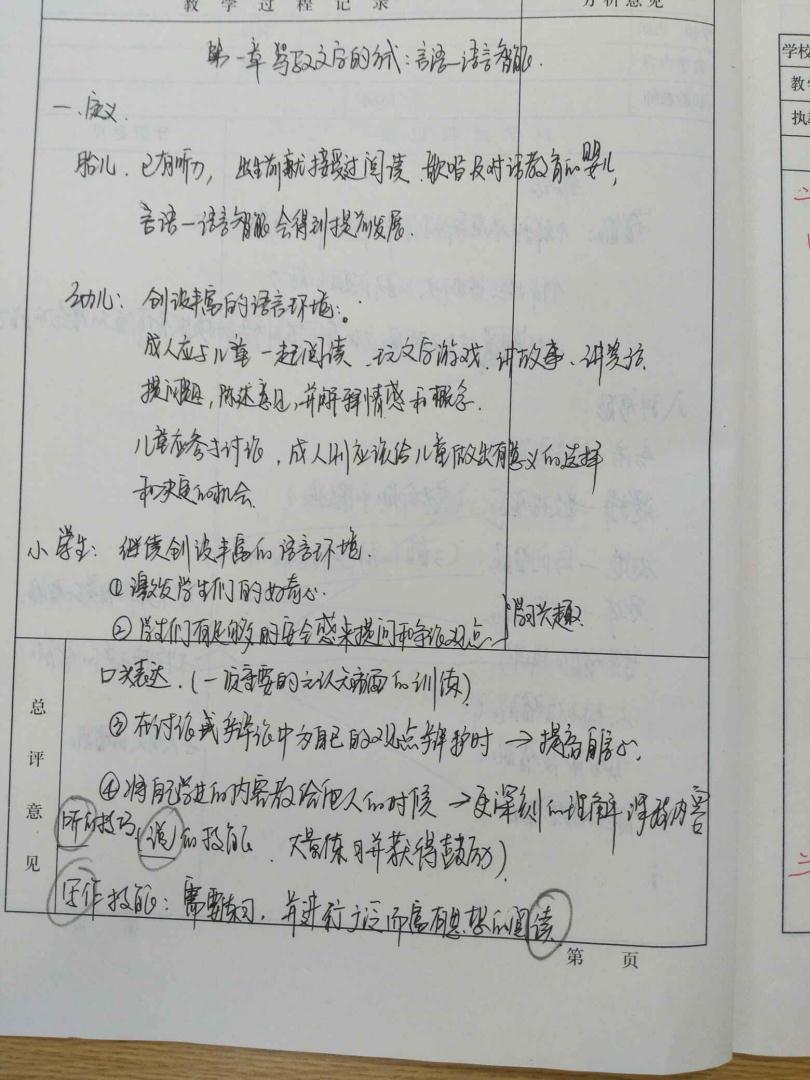 教学过程记录
分析意见
第一章 导致文字的方式：言语—语言智能.
一、定义.
胎儿. 已有听力, 出生前就接受过阅读、歌唱及对话教育的婴儿,
言语—语言智能会得到提前发展.
幼儿: 创设丰富的语言环境:
成人应与儿童一起阅读、玩文字游戏、讲故事、讲笑话
提问题, 陈述意见, 并解释情感和概念.
儿童应参与讨论, 成人则应该给儿童做出有意义的选择
和决定的机会.
小学生: 继续创设丰富的语言环境.
①激发学生们的好奇心.
②学生们有足够的安全感来提问和争论观点
学习兴趣
口头表达.(一项重要的元认知方面的训练)
③在讨论或辩论中为自己的观点辩护时→提高自信心.
④将自己学过的内容教给他人的时候→更深刻的理解课程内容
听的技巧, 说的技能 大量练习并获得鼓励)
写作技能: 需要练习, 并进行广泛而富有思想的阅读
总评意见
第 页
学校
教学
执教